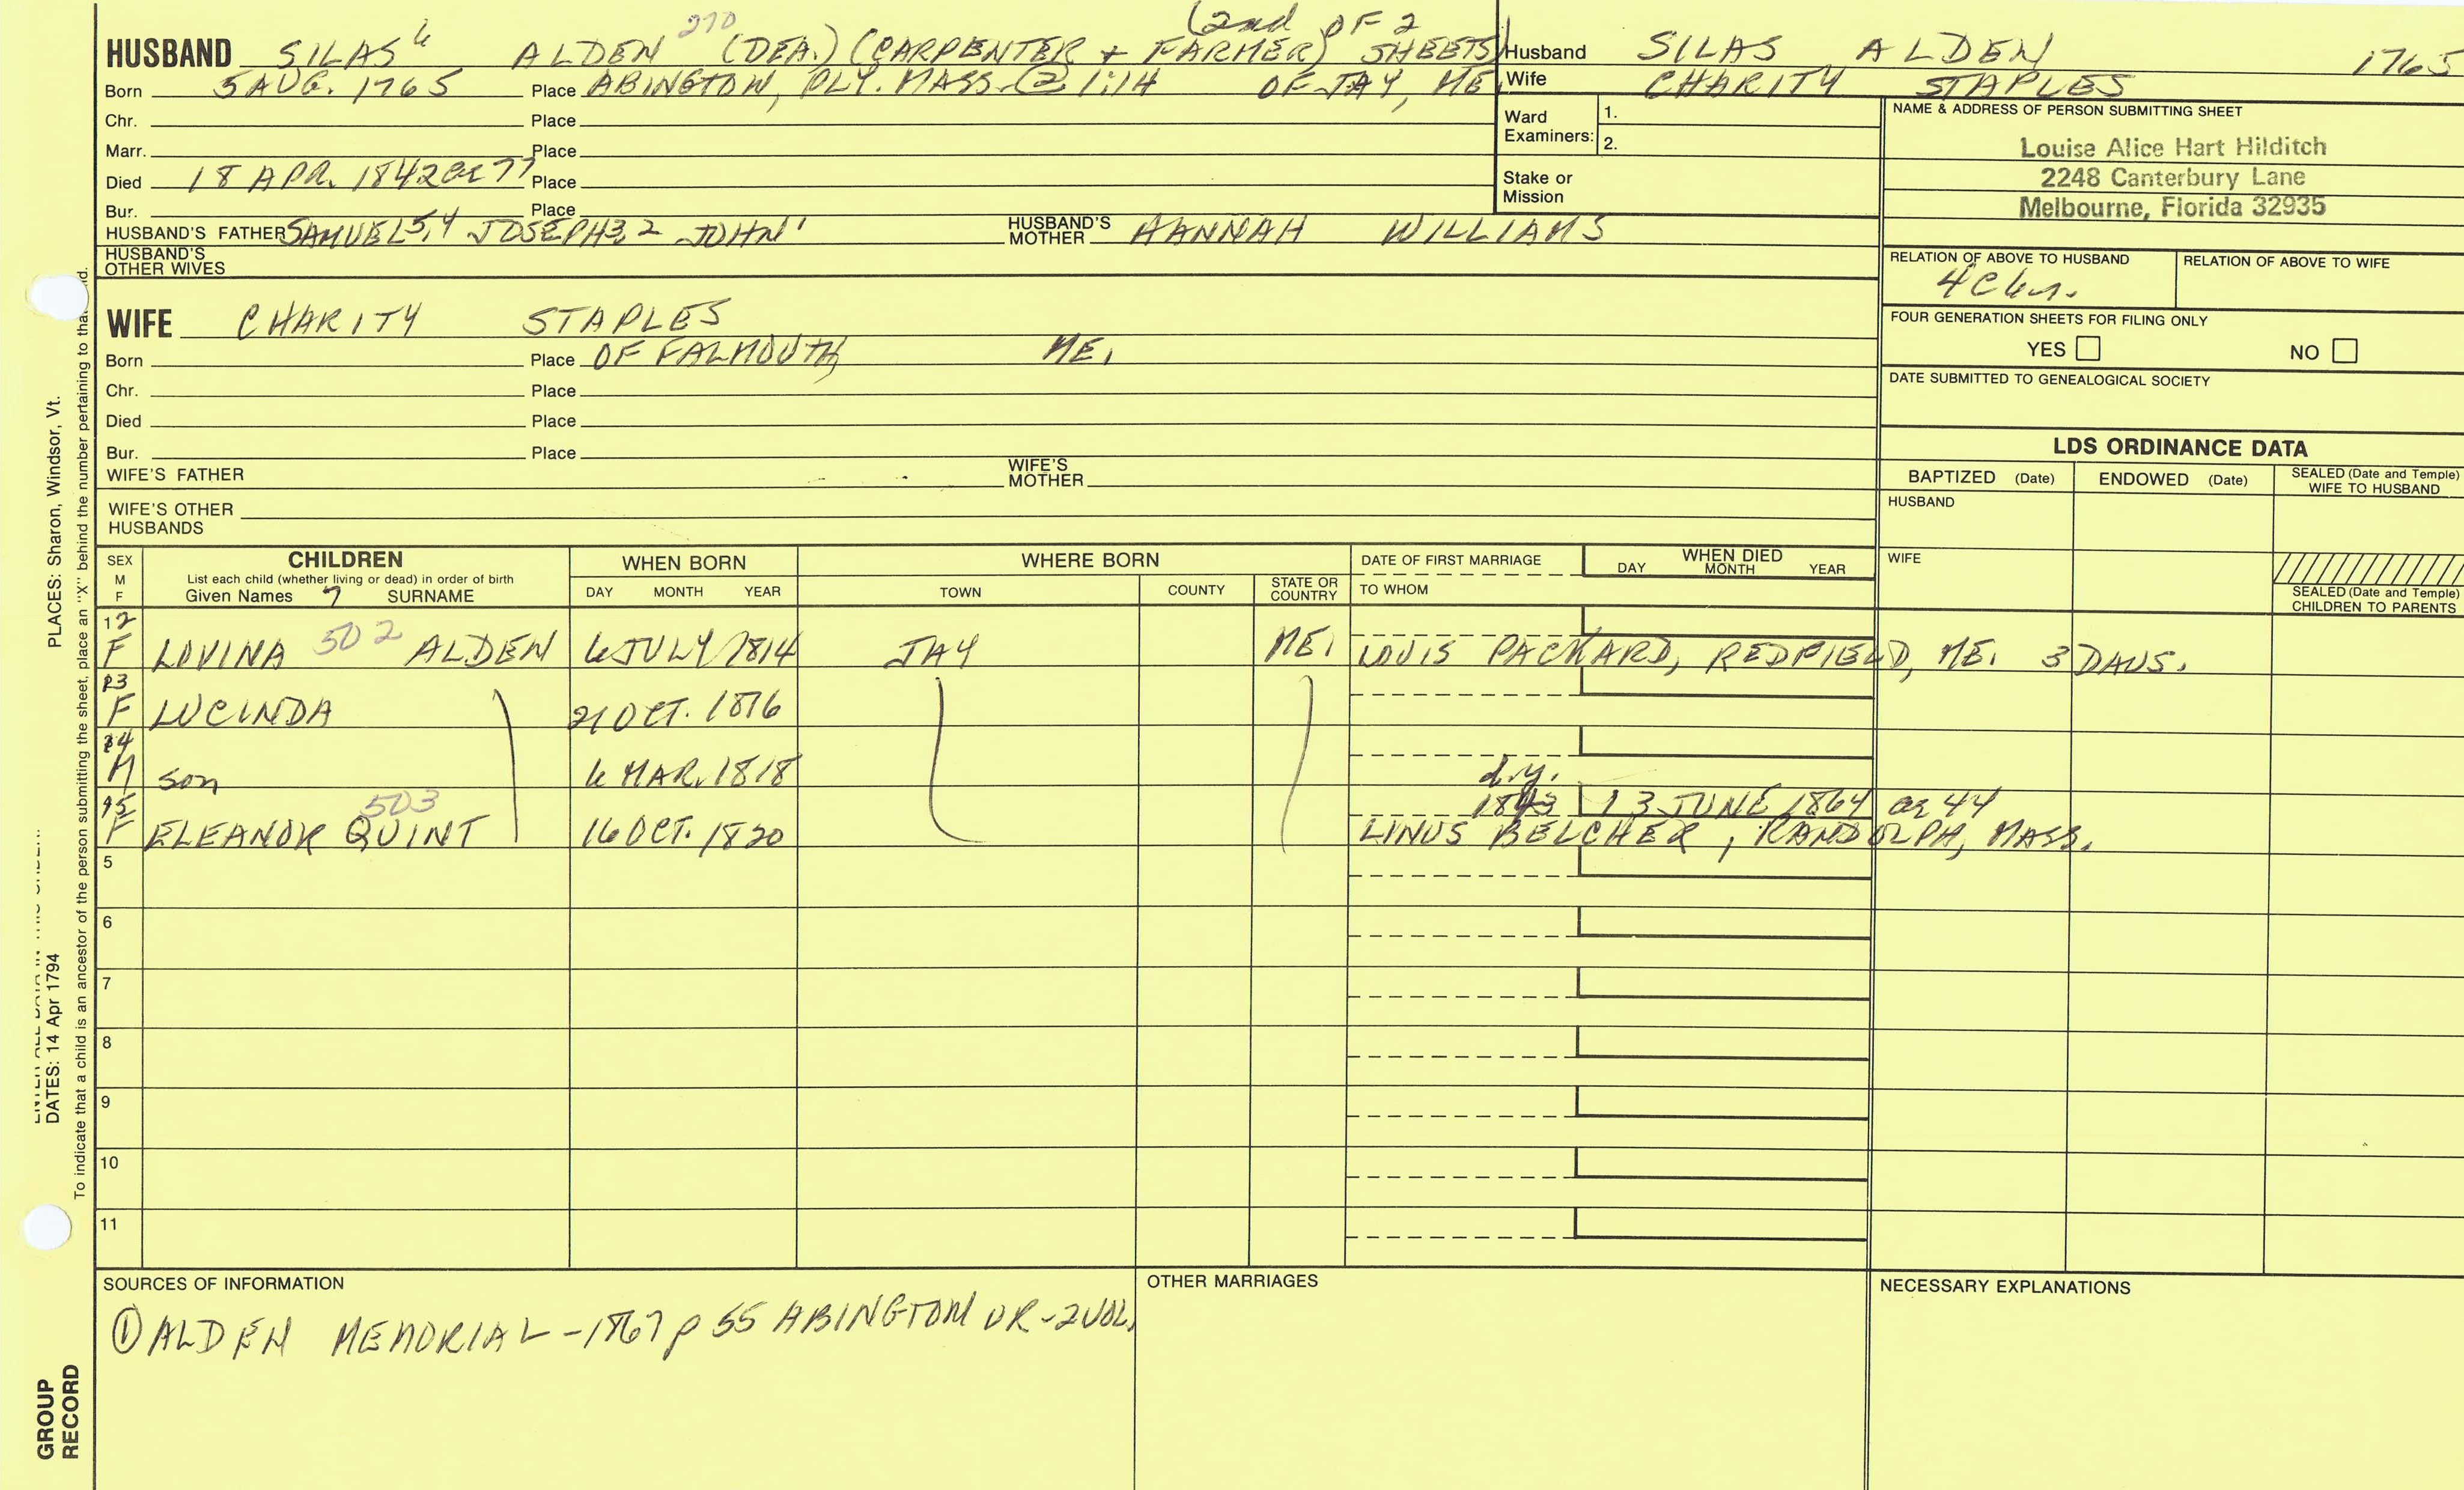 (2nd OF 2
270
HUSBAND SILAS 6 ALDEN (DEA.) (CARPENTER + FARMER) SHEETS)
Born 5 AUG. 1765 Place ABINGTON, PLY. MASS. @ 1:14 OF JAY, ME.
Chr. Place
Marr. Place
Died 18 APR. 1842 ae 77 Place
Bur. Place
HUSBAND'S FATHER SAMUEL5,4 JOSEPH3,2 JOHN1 HUSBAND'S MOTHER HANNAH WILLIAMS
HUSBAND'S OTHER WIVES
Husband SILAS ALDEN 1765
Wife CHARITY STAPLES
Ward Examiners: 1.
2.
Stake or Mission
NAME & ADDRESS OF PERSON SUBMITTING SHEET
Louise Alice Hart Hilditch
2248 Canterbury Lane
Melbourne, Florida 32935
RELATION OF ABOVE TO HUSBAND RELATION OF ABOVE TO WIFE
4C 6
FOUR GENERATION SHEETS FOR FILING ONLY
YES NO
DATE SUBMITTED TO GENEALOGICAL SOCIETY
WIFE CHARITY STAPLES
Born Place OF FALMOUTH ME.
Chr. Place
Died Place
Bur. Place
WIFE'S FATHER WIFE'S MOTHER
WIFE'S OTHER HUSBANDS
LDS ORDINANCE DATA
BAPTIZED (Date) ENDOWED (Date) SEALED (Date and Temple) WIFE TO HUSBAND
HUSBAND
WIFE
SEALED (Date and Temple) CHILDREN TO PARENTS
SEX M F
CHILDREN
List each child (whether living or dead) in order of birth
Given Names 7 SURNAME
WHEN BORN
DAY MONTH YEAR
WHERE BORN
TOWN COUNTY STATE OR COUNTRY
DATE OF FIRST MARRIAGE
TO WHOM
WHEN DIED
DAY MONTH YEAR
12
F LOVINA 502 ALDEN 6 JULY 1814 JAY ME. LOUIS PACKARD, REDFIELD, ME. 3 DAUS.
13
F LUCINDA 21 OCT. 1816
14
M son 6 MAR. 1818
d.y.
15 503 1843 13 JUNE 1864 ae 44
F ELEANOR QUINT 16 OCT. 1820 LINUS BELCHER, RANDOLPH, MASS.
5
6
7
8
9
10
11
SOURCES OF INFORMATION
① ALDEN MEMORIAL - 1867 p 55 ABINGTON VR - 2 VOL.
OTHER MARRIAGES
NECESSARY EXPLANATIONS
PLACES: Sharon, Windsor, Vt.
DATES: 14 Apr 1794
To indicate that a child is an ancestor of the person submitting the sheet, place an "X" behind the number pertaining to
GROUP RECORD